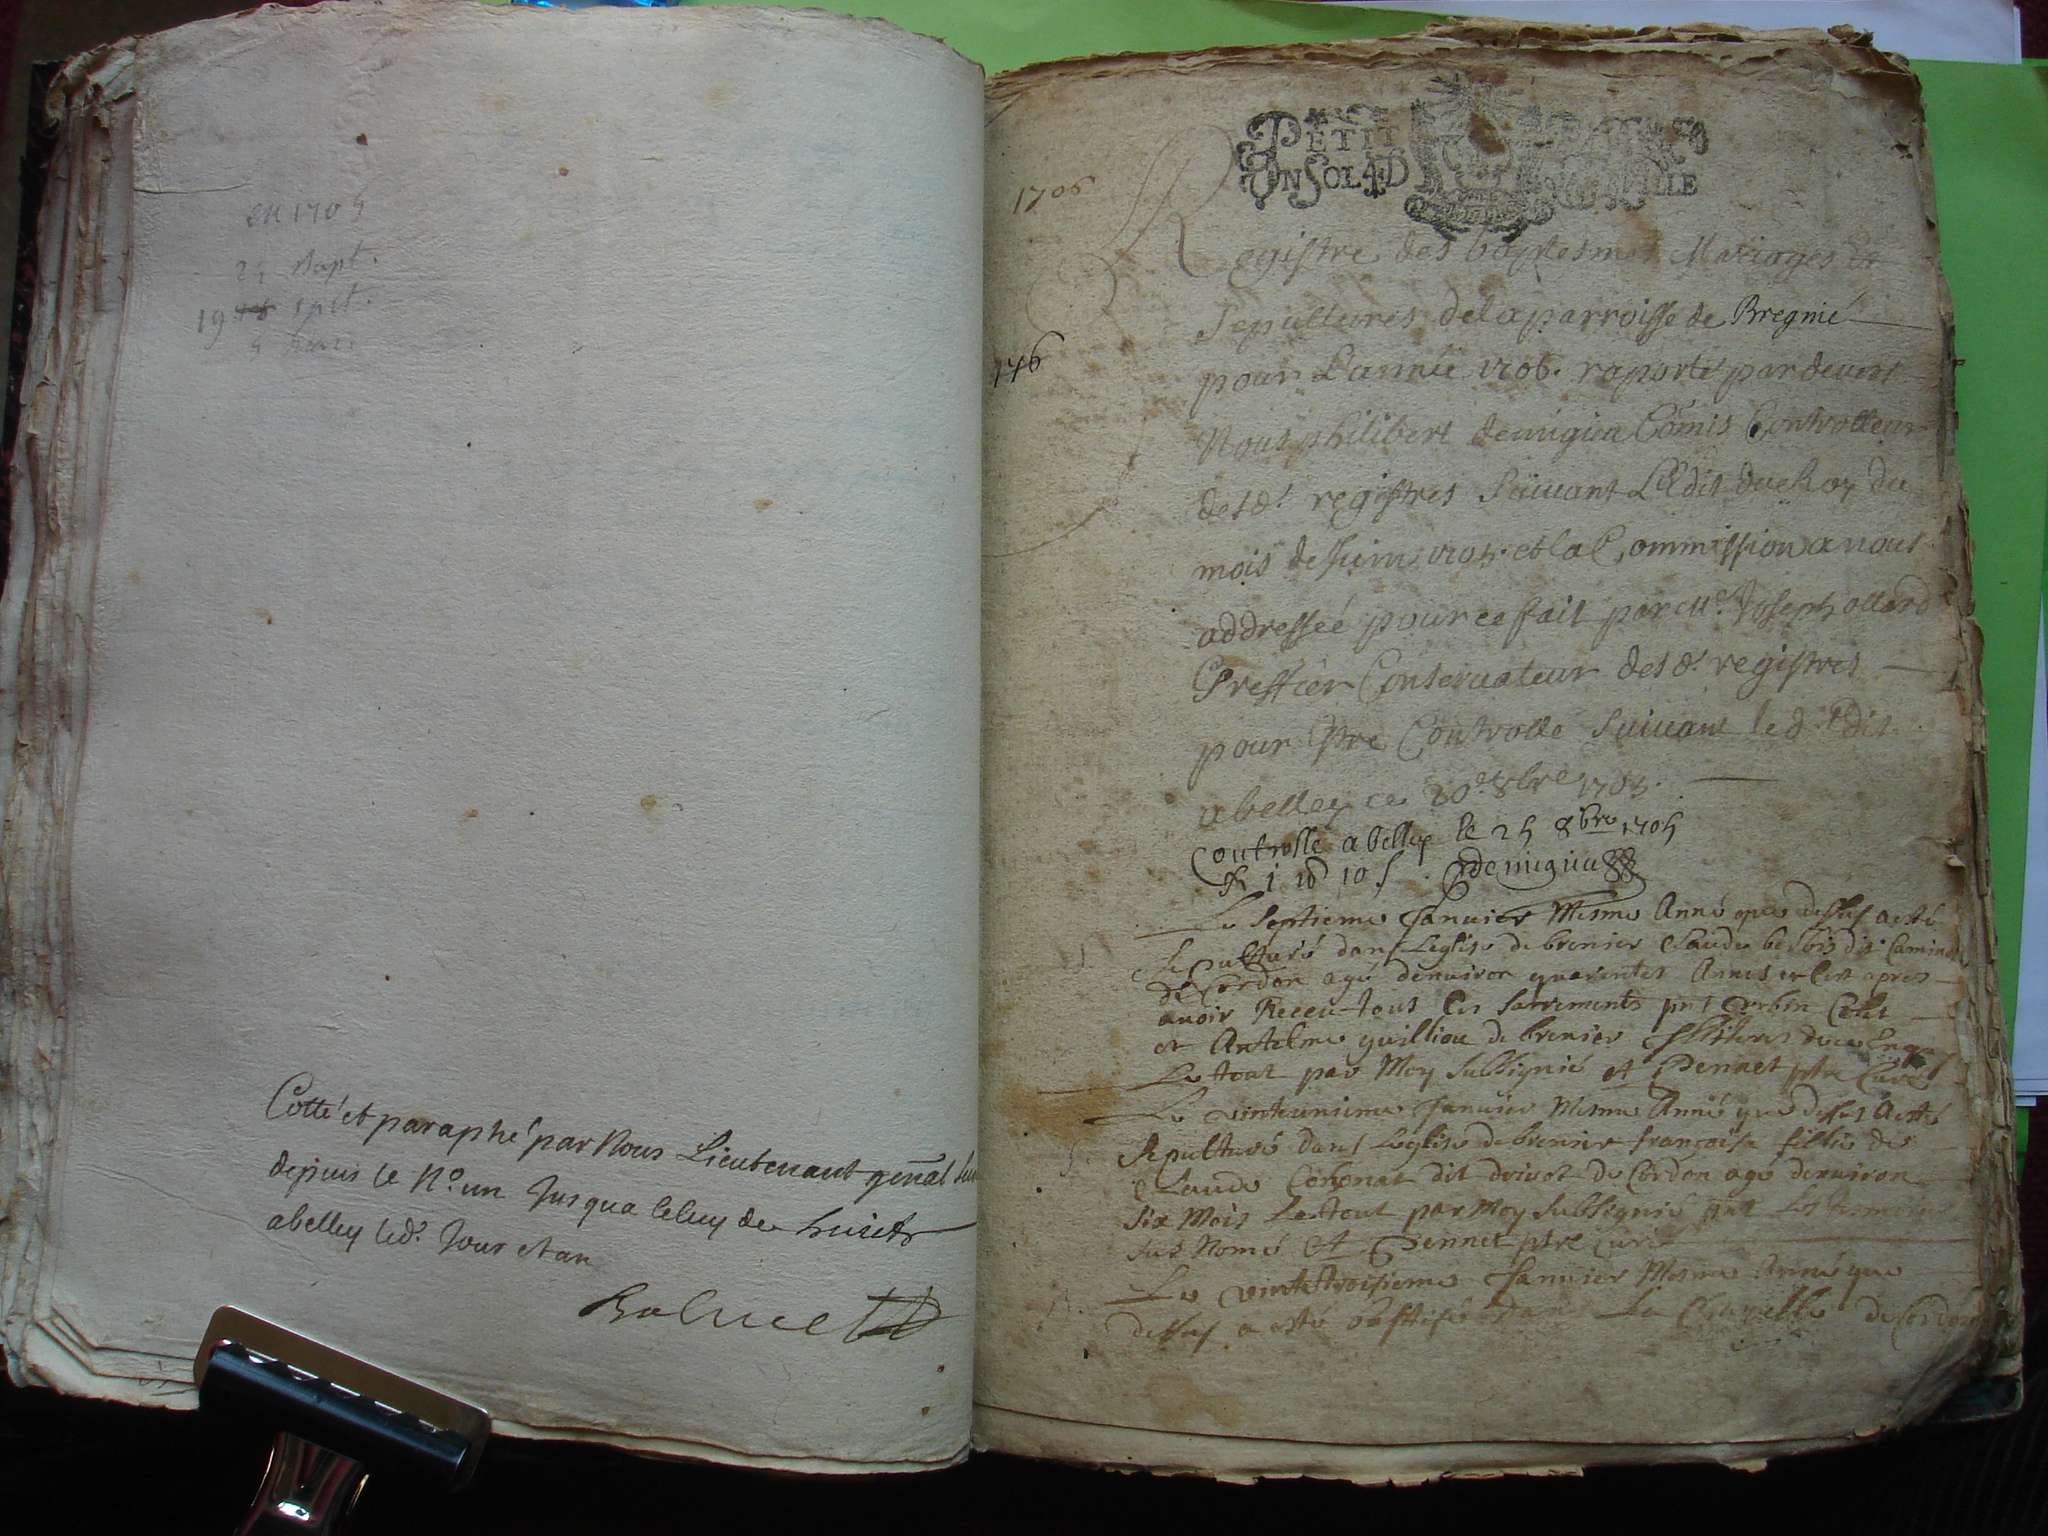 en 1705
25 Bapt.
19 splt.
5 mar.
Cotté et paraphé par Nous Lieutenant genãl
depuis le No. un Jusqua Celuy de huict
abelley led. Jour et an
1706
PETIT PAPIER
UN SOL LE D
1706
Registre des baptesmes Mariages et
Sepultures dela parroisse de Bregnié
pour L'année 1706. raporté pardevent
Nous philibert demigieu Cõmis Controlleur
desd. registres Suivant L'Edit du Roy du
mois de Juin 1705. et la Commission a nous
addressée pour ce fait par Me. Joseph ollard
Greffier Conservateur desd. registres
pour Estre Controllé Suivant led. Edit
a belley ce 20e. 8bre 1705.
Controllé a belley le 25 8bre 1705
R 1 10 s. demigieu
Le Septieme Janvier Mesme Anné que dessus a esté
Sepulturé dans Leglise de brenier Claude dit
de Cordon agé denviron quarentes Annes et Cest apres
avoir Receu tous les Sacrements pnt
et Antelme guilliou de brenier
Le tout par Moy Subsigné et A Pennet ptre Curé
Le vinteunieme Janvier Mesme Anné que dessus a esté
Sepulturé dans Leglise de brenier françoise fillie de
Claude dit de Cordon agé denviron
Six Mois Le tout par Moy Subsigné pnt Les tesmoins
Sus Nomé et A Pennet ptre Curé
Le vintetroisieme Janvier Mesme Anné que
dessus a esté baptisé dans La Chapelle de Cordon